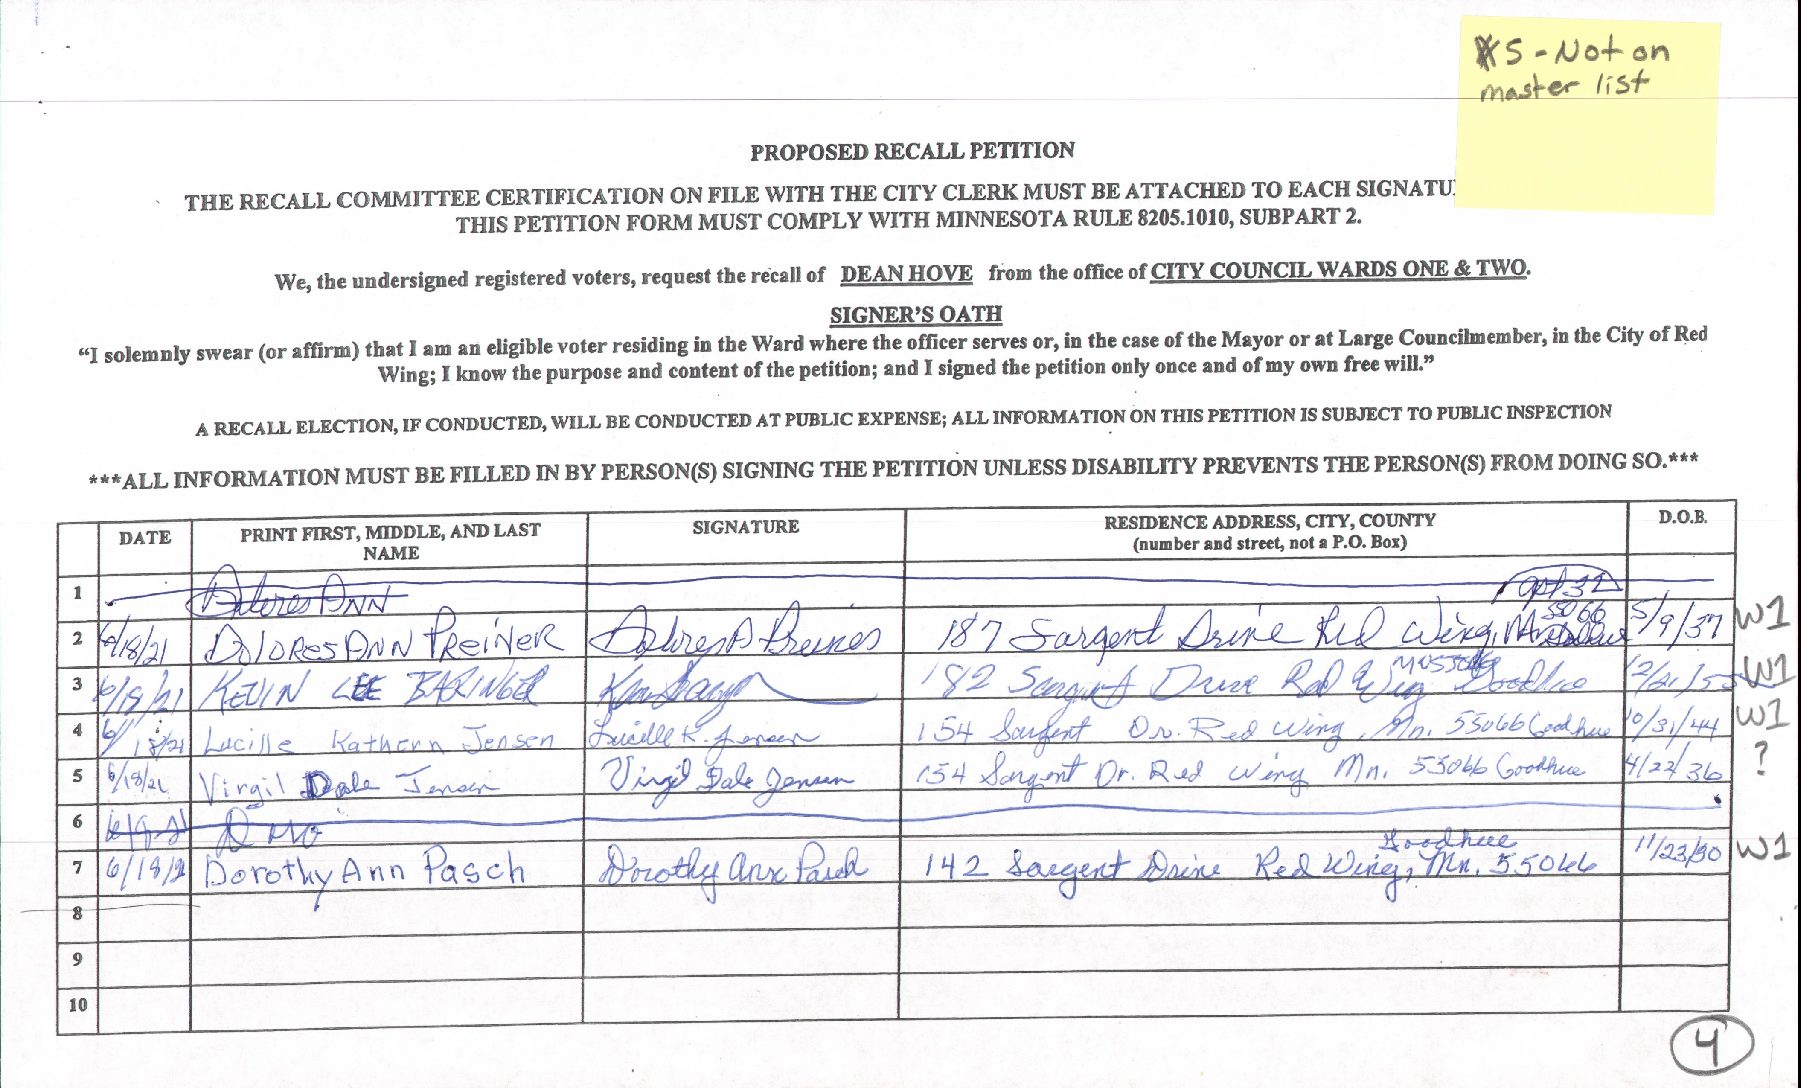 *5 - Not on
master list
PROPOSED RECALL PETITION
THE RECALL COMMITTEE CERTIFICATION ON FILE WITH THE CITY CLERK MUST BE ATTACHED TO EACH SIGNATU
THIS PETITION FORM MUST COMPLY WITH MINNESOTA RULE 8205.1010, SUBPART 2.
We, the undersigned registered voters, request the recall of DEAN HOVE from the office of CITY COUNCIL WARDS ONE & TWO.
SIGNER'S OATH
"I solemnly swear (or affirm) that I am an eligible voter residing in the Ward where the officer serves or, in the case of the Mayor or at Large Councilmember, in the City of Red
Wing; I know the purpose and content of the petition; and I signed the petition only once and of my own free will."
A RECALL ELECTION, IF CONDUCTED, WILL BE CONDUCTED AT PUBLIC EXPENSE; ALL INFORMATION ON THIS PETITION IS SUBJECT TO PUBLIC INSPECTION
***ALL INFORMATION MUST BE FILLED IN BY PERSON(S) SIGNING THE PETITION UNLESS DISABILITY PREVENTS THE PERSON(S) FROM DOING SO.***
DATE PRINT FIRST, MIDDLE, AND LAST NAME SIGNATURE RESIDENCE ADDRESS, CITY, COUNTY (number and street, not a P.O. Box) D.O.B.
1 Dolores ANN apt 32
2 6/18/21 DOLORES ANN PREINER Dolores A Preiner 187 Sargent Drive Red Wing, Mn 55066 5/9/37 W1
3 6/18/21 KEVIN LEE BARINGER 182 Sargent Drive Red Wing MN 55066 Goodhue 12/21/55 W1
4 6/18/21 Lucille Kathern Jensen Lucille K. Jensen 154 Sargent Dr. Red Wing, Mn. 55066 Goodhue 10/31/44 W1
5 6/18/21 Virgil Dale Jensen Virgil Dale Jensen 154 Sargent Dr. Red Wing Mn. 55066 Goodhue 4/22/36 ?
6
7 6/18/21 Dorothy Ann Pasch Dorothy Ann Pasch 142 Sargent Drive Red Wing, Mn. 55066 Goodhue 11/23/30 W1
8
9
10
4